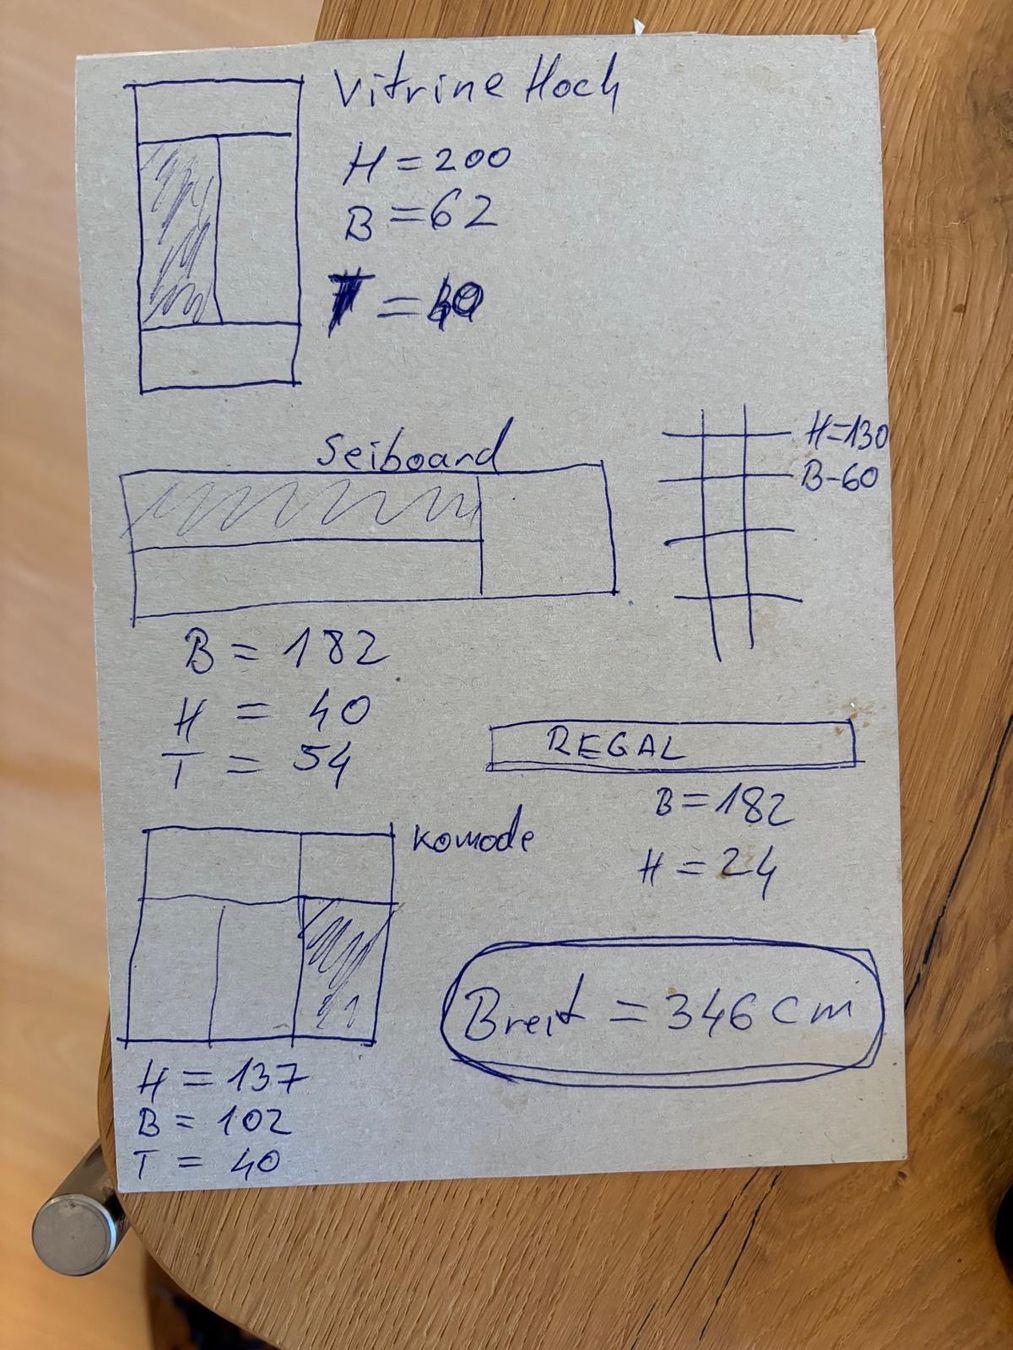 Vitrine Hoch
H = 200
B = 62
T = 40
Seiboard
H=130
B-60
B = 182
H = 40
T = 54
REGAL
B = 182
H = 24
Komode
Breit = 346 cm
H = 137
B = 102
T = 40